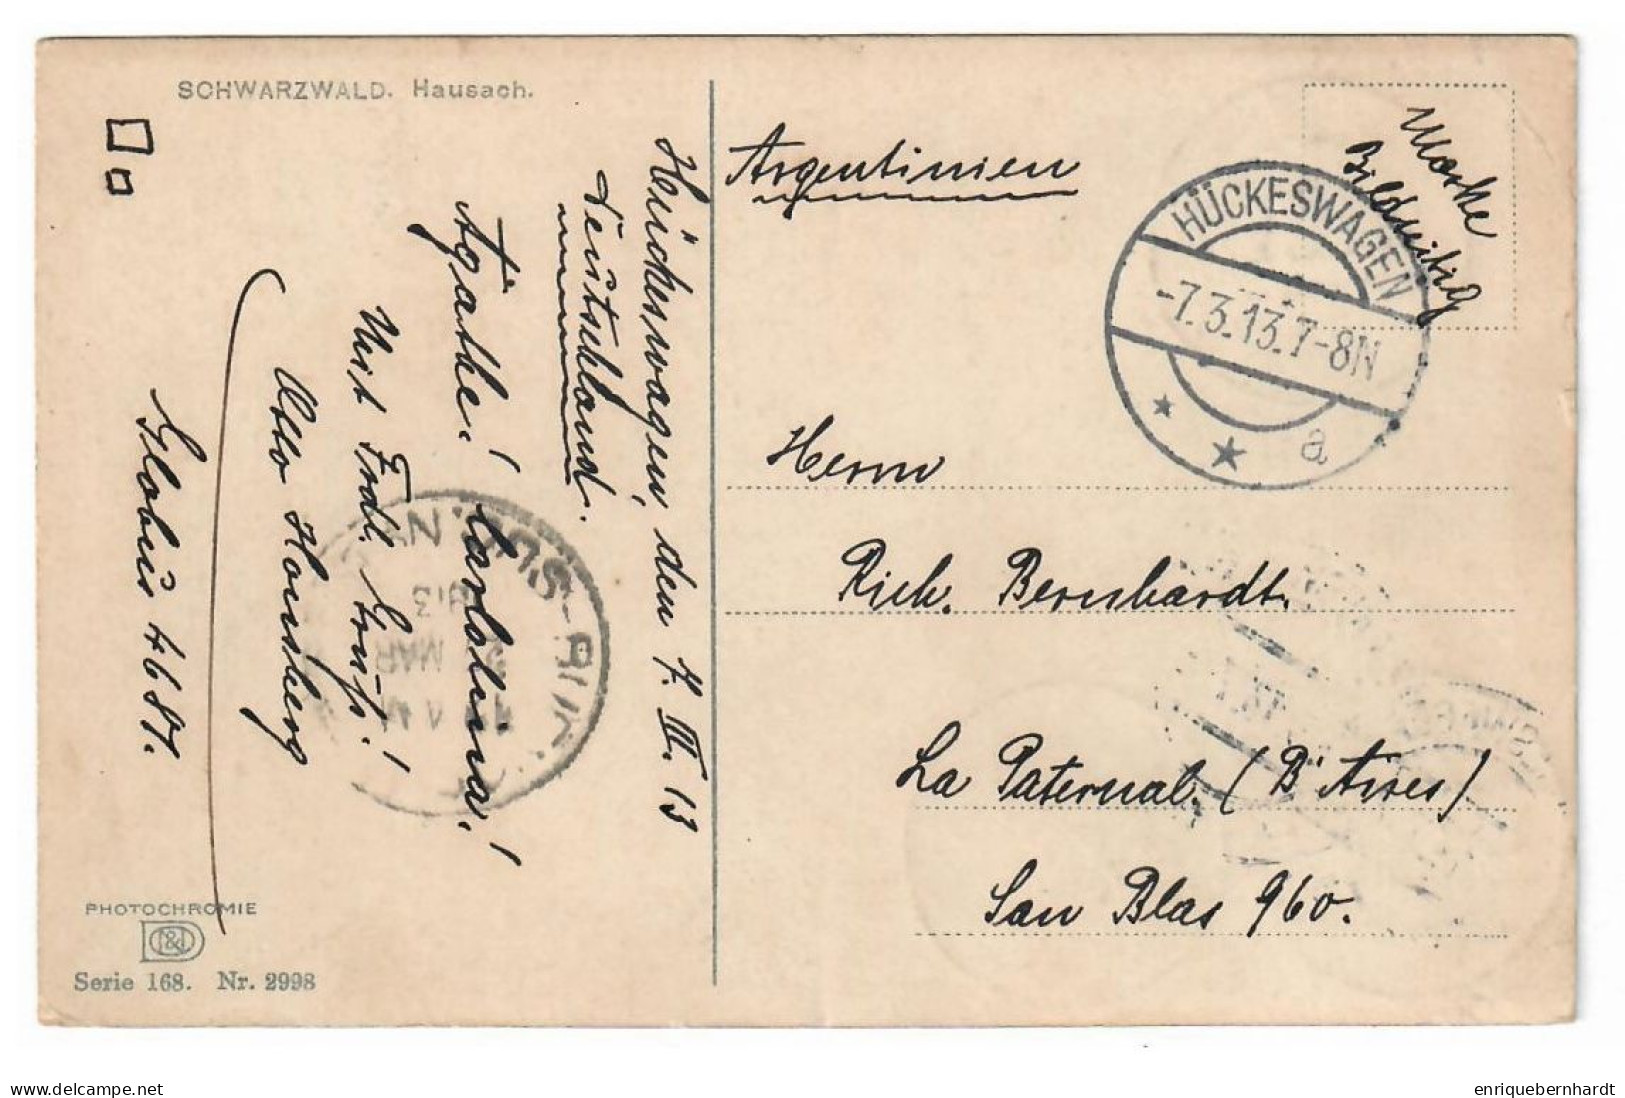 SCHWARZWALD. Hausach.
Hückeswagen, den 7. III. 13
Deutschland.
Agathe! Carolina!
Mit Frdl. Gruß!
Otto Honsberg
Globus 4687.
PHOTOCHROMIE
Serie 168. Nr. 2998
Argentinien
Marke
Bildseitig
HÜCKESWAGEN
-7.3.13.7-8N
a
Herrn
Rich. Bernhardt.
La Paternal. (Bs Aires)
San Blas 960.
MAR
www.delcampe.net
enriquebernhardt